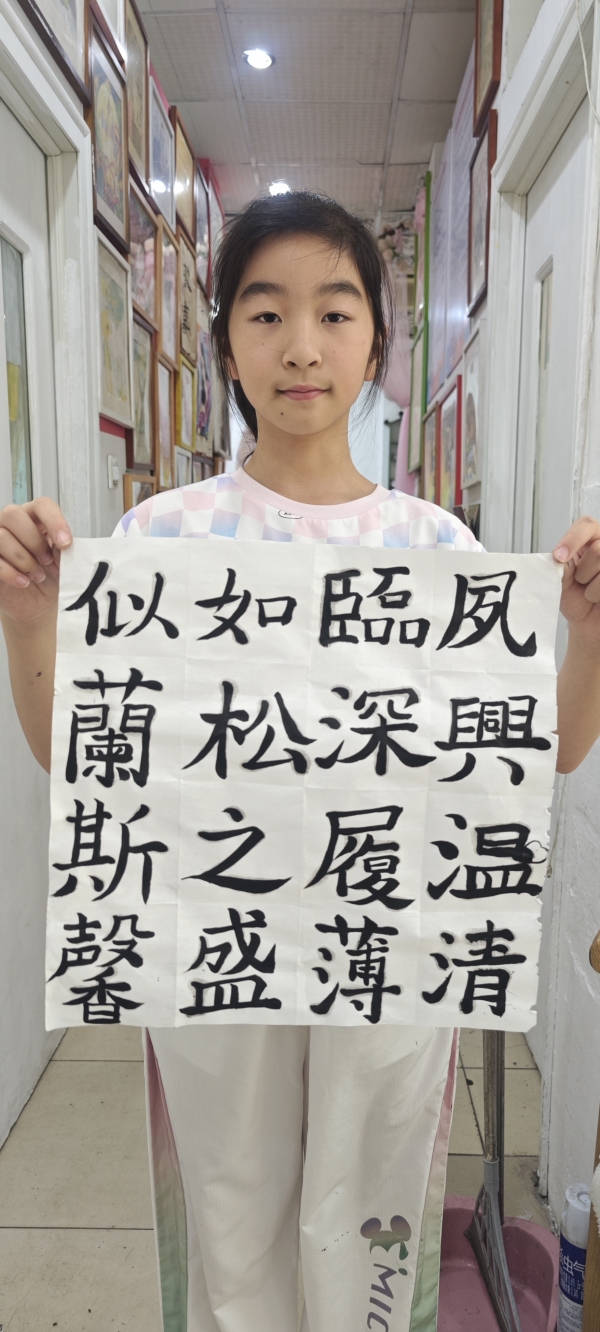 夙興温清
臨深履薄
如松之盛
似蘭斯馨
MIC
虫气